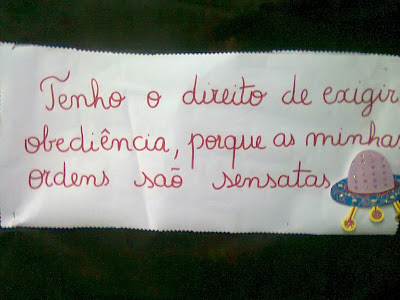 Tenho o direito de exigir
obediência, porque as minhas
ordens saõ sensatas